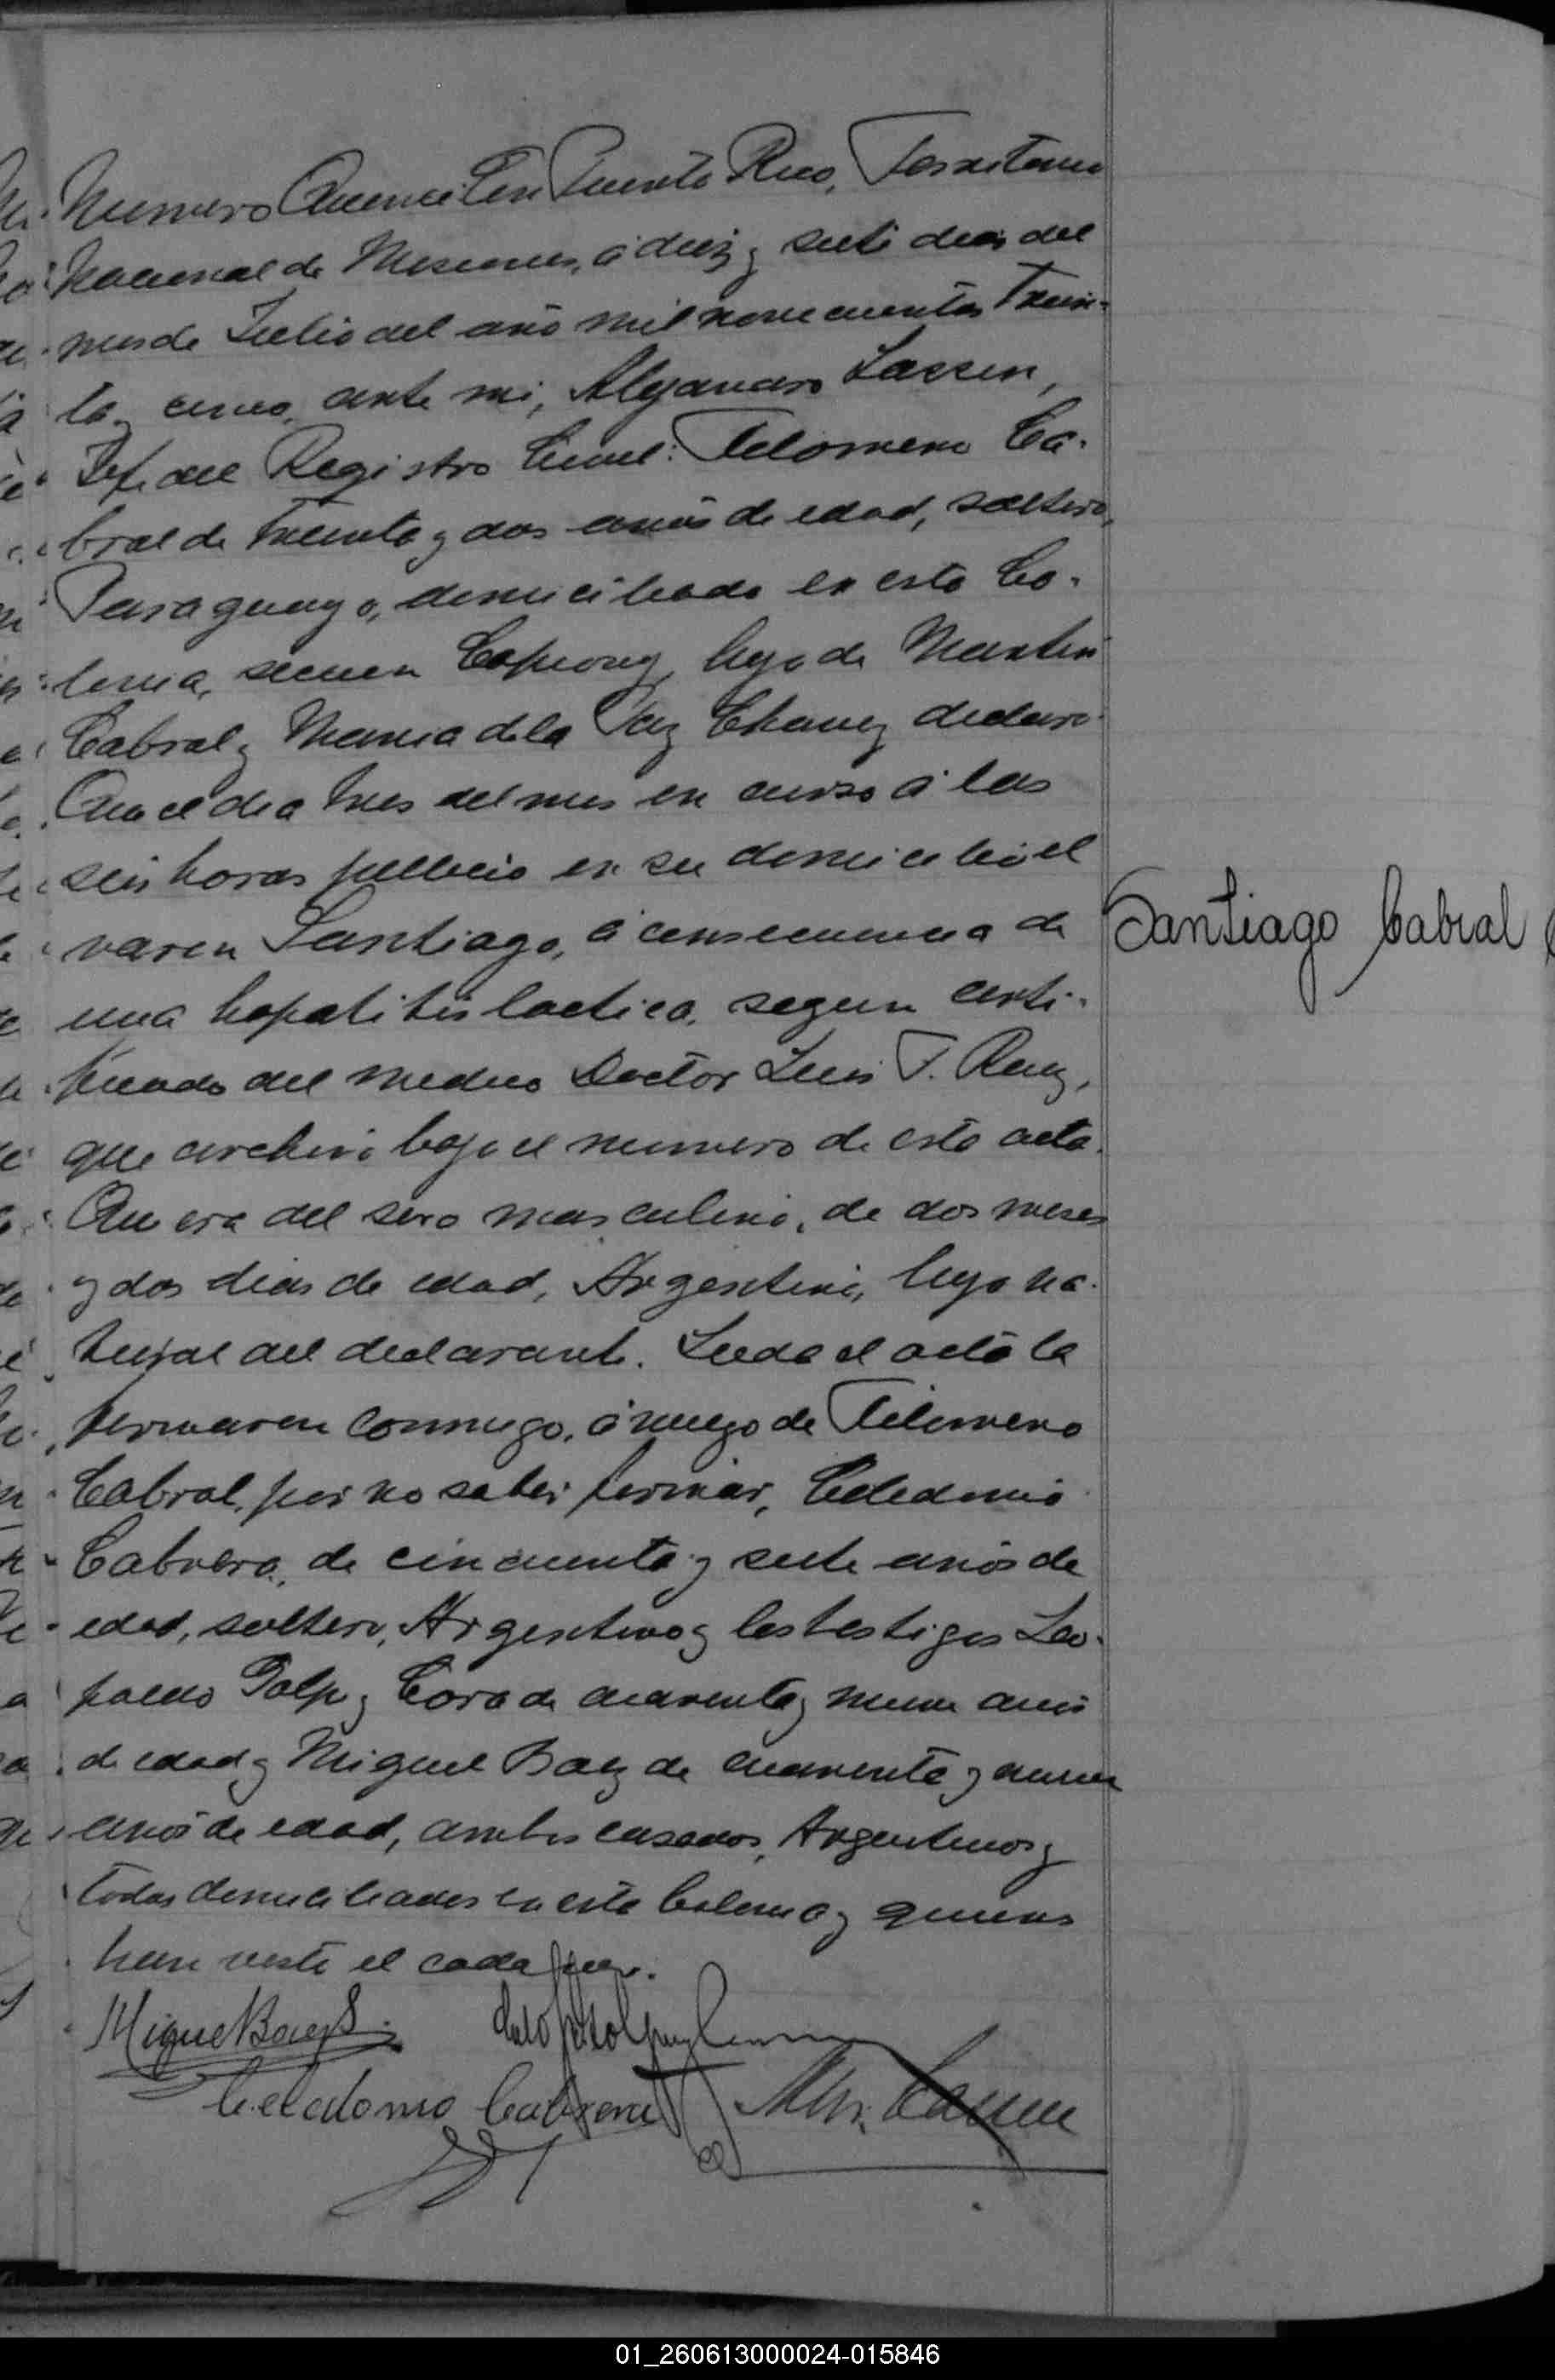 Numero Quince: En Puerto Rico, Territorio
Nacional de Misiones, á diez y siete dias del
mes de Julio del año mil novecientos Trein-
ta y cinco, ante mi, Alejandro Lassen,
Jefe del Registro Civil: Filomeno Ca-
bral de treinta y dos años de edad, soltero,
Paraguayo, domiciliado en esta Co-
lonia, seccion Capiovy, hijo de Martin
Cabral y Maria de la Paz Chavez declaro:
Que el dia tres del mes en curso á las
seis horas fallecio en su domicilio el
varon Santiago, á consecuencia de
una hepatitis lactica, segun certi-
ficado del medico Doctor Luis T.
que archivo bajo el numero de esta acta.
Que era del sexo masculino, de dos meses
y dos dias de edad, Argentino, hijo na-
tural del declarante. Leida el acta la
firmaron conmigo, á ruego de Filomeno
Cabral, por no saber firmar, Celedonio
Cabrera, de cincuenta y siete años de
edad, soltero, Argentino y los testigos Leo-
poldo Golpy Cora de cuarenta y nueve años
de edad y Miguel Baez de cuarenta y nueve
años de edad, ambos casados, Argentinos y
todos domiciliados en esta Colonia y quienes
han visto el cadaver.
Santiago Cabral
Miguel Baez
Celedonio Cabrera
Alej. Lassen
01_260613000024-015846